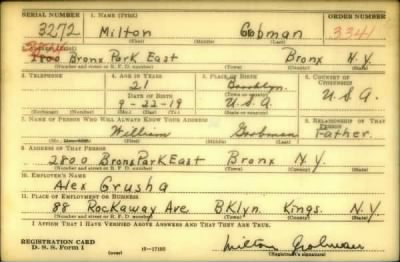 SERIAL NUMBER 1. NAME (Print) ORDER NUMBER
3272 Milton Gobman 334
(First) (Middle) (Last)
2800 Bronx Park East Bronx N.Y.
(Number and street or R. F. D. number) (Town) (County) (State)
3. TELEPHONE 4. AGE IN YEARS 5. PLACE OF BIRTH 6. COUNTRY OF CITIZENSHIP
21 Brooklyn
DATE OF BIRTH (Town or county)
9-22-19 U.S.A. U.S.A.
(Exchange) (Number) (Mo.) (Day) (Yr.) (State or country)
7. NAME OF PERSON WHO WILL ALWAYS KNOW YOUR ADDRESS 8. RELATIONSHIP OF THAT PERSON
William Grobman Father
(First) (Middle) (Last)
9. ADDRESS OF THAT PERSON
2800 BronxParkEast Bronx N.Y.
(Number and street or R. F. D. number) (Town) (County) (State)
10. EMPLOYER'S NAME
Alex Grusha
11. PLACE OF EMPLOYMENT OR BUSINESS
88 Rockaway Ave BKlyn. Kings. N.Y.
(Number and street or R. F. D. number) (Town) (County) (State)
I AFFIRM THAT I HAVE VERIFIED ABOVE ANSWERS AND THAT THEY ARE TRUE.
REGISTRATION CARD
D. S. S. Form 1 (over) 16-17105 Milton Grobman
(Registrant's signature)